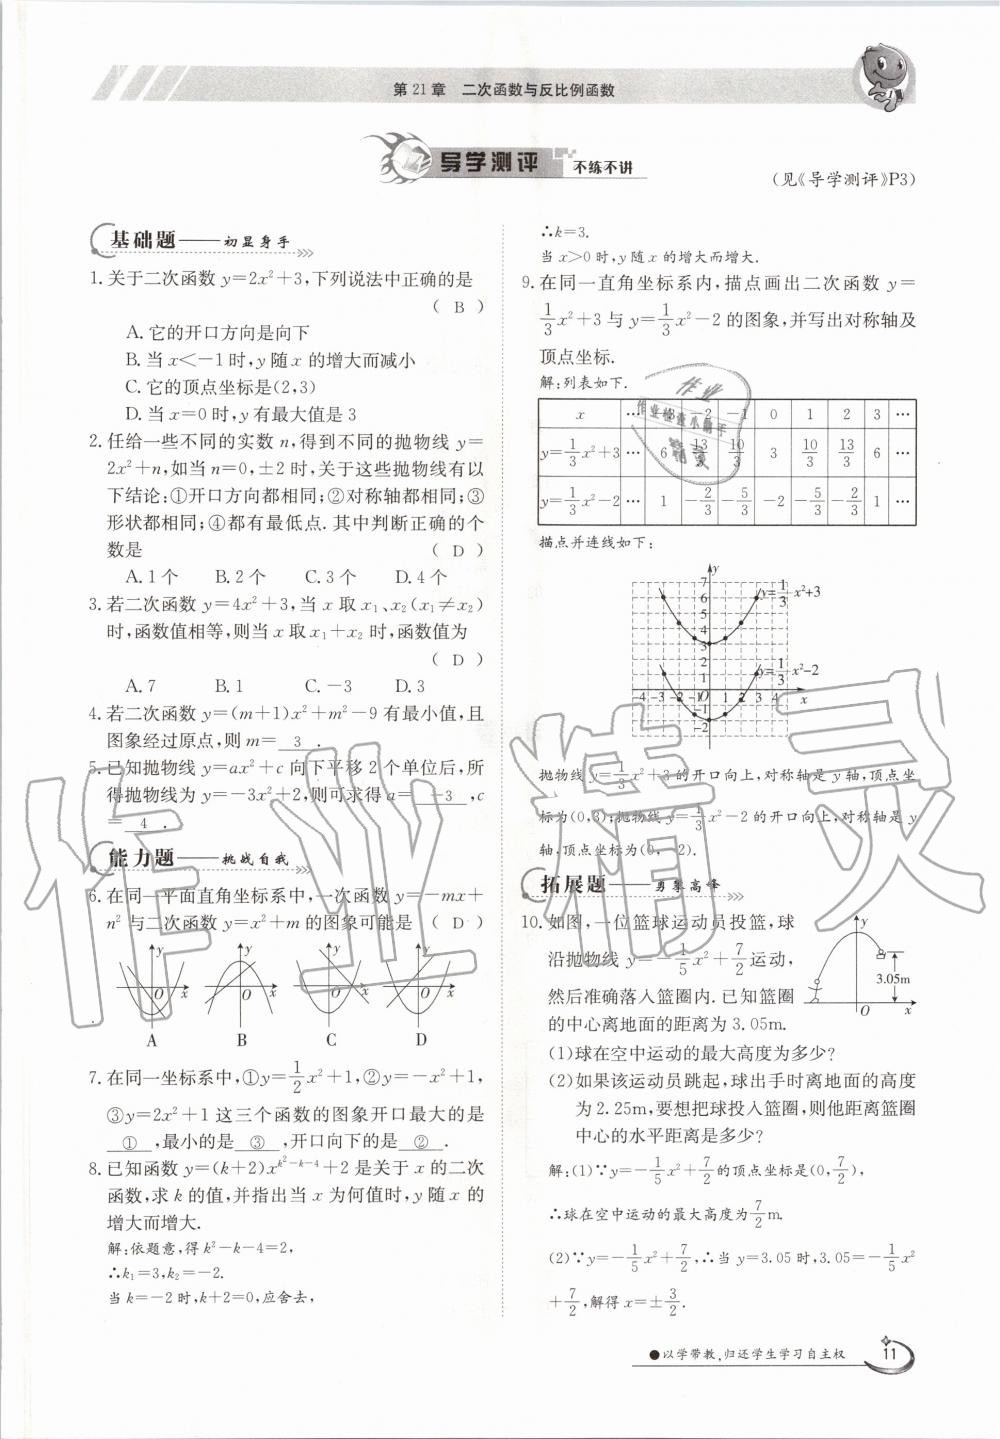 第21章 二次函数与反比例函数
导学测评 不练不讲
(见《导学测评》P3)
基础题——初显身手
1. 关于二次函数 y=2x²+3,下列说法中正确的是
( B )
A. 它的开口方向是向下
B. 当 x<-1时,y随x的增大而减小
C. 它的顶点坐标是(2,3)
D. 当 x=0时,y有最大值是3
2. 任给一些不同的实数 n,得到不同的抛物线 y=
2x²+n,如当 n=0,±2时,关于这些抛物线有以
下结论:①开口方向都相同;②对称轴都相同;③
形状都相同;④都有最低点. 其中判断正确的个
数是 ( D )
A. 1个 B. 2个 C. 3个 D. 4个
3. 若二次函数 y=4x²+3,当 x 取 x₁、x₂(x₁≠x₂)
时,函数值相等,则当 x 取 x₁+x₂ 时,函数值为
( D )
A. 7 B. 1 C. -3 D. 3
4. 若二次函数 y=(m+1)x²+m²-9 有最小值,且
图象经过原点,则 m= 3 .
5. 已知抛物线 y=ax²+c 向下平移2个单位后,所
得抛物线为 y=-3x²+2,则可求得 a= -3 ,c
= 4 .
能力题——挑战自我
6. 在同一平面直角坐标系中,一次函数 y=-mx+
n² 与二次函数 y=x²+m 的图象可能是 ( D )
y O x y O x y O x y O x
A B C D
7. 在同一坐标系中,①y=1/2x²+1,②y=-x²+1,
③y=2x²+1 这三个函数的图象开口最大的是
① ,最小的是 ③ ,开口向下的是 ② .
8. 已知函数 y=(k+2)x^(k²-k-4)+2 是关于 x 的二次
函数,求 k 的值,并指出当 x 为何值时,y 随 x 的
增大而增大.
解:依题意,得 k²-k-4=2,
∴k₁=3,k₂=-2.
当 k=-2时,k+2=0,应舍去,
∴k=3.
当 x>0时,y随x的增大而增大.
9. 在同一直角坐标系内,描点画出二次函数 y=
1/3x²+3 与 y=1/3x²-2 的图象,并写出对称轴及
顶点坐标.
解:列表如下.
x … -2 -1 0 1 2 3 …
y=1/3x²+3 … 6 13/3 10/3 3 10/3 13/3 6 …
y=1/3x²-2 … 1 -2/3 -5/3 -2 -5/3 -2/3 1 …
描点并连线如下:
y
7
6
5
4
3
2
1
y=1/3x²+3
y=1/3x²-2
-4 -3 -2 -1 O 1 2 3 4 x
-1
-2
抛物线 y=1/3x²+3 的开口向上,对称轴是 y轴,顶点坐
标为(0,3);抛物线 y=1/3x²-2 的开口向上,对称轴是 y
轴,顶点坐标为(0,-2).
拓展题——勇攀高峰
10. 如图,一位篮球运动员投篮,球
沿抛物线 y=-1/5x²+7/2 运动,
然后准确落入篮圈内. 已知篮圈
的中心离地面的距离为3.05m.
y
3.05m
O x
(1)球在空中运动的最大高度为多少?
(2)如果该运动员跳起,球出手时离地面的高度
为2.25m,要想把球投入篮圈,则他距离篮圈
中心的水平距离是多少?
解:(1)∵y=-1/5x²+7/2 的顶点坐标是(0,7/2),
∴球在空中运动的最大高度为7/2m.
(2)∵y=-1/5x²+7/2,∴当 y=3.05时,3.05=-1/5x²
+7/2,解得 x=±3/2.
●以学带教,归还学生学习自主权
11
作业
作业检查小助手
精灵
作业精灵